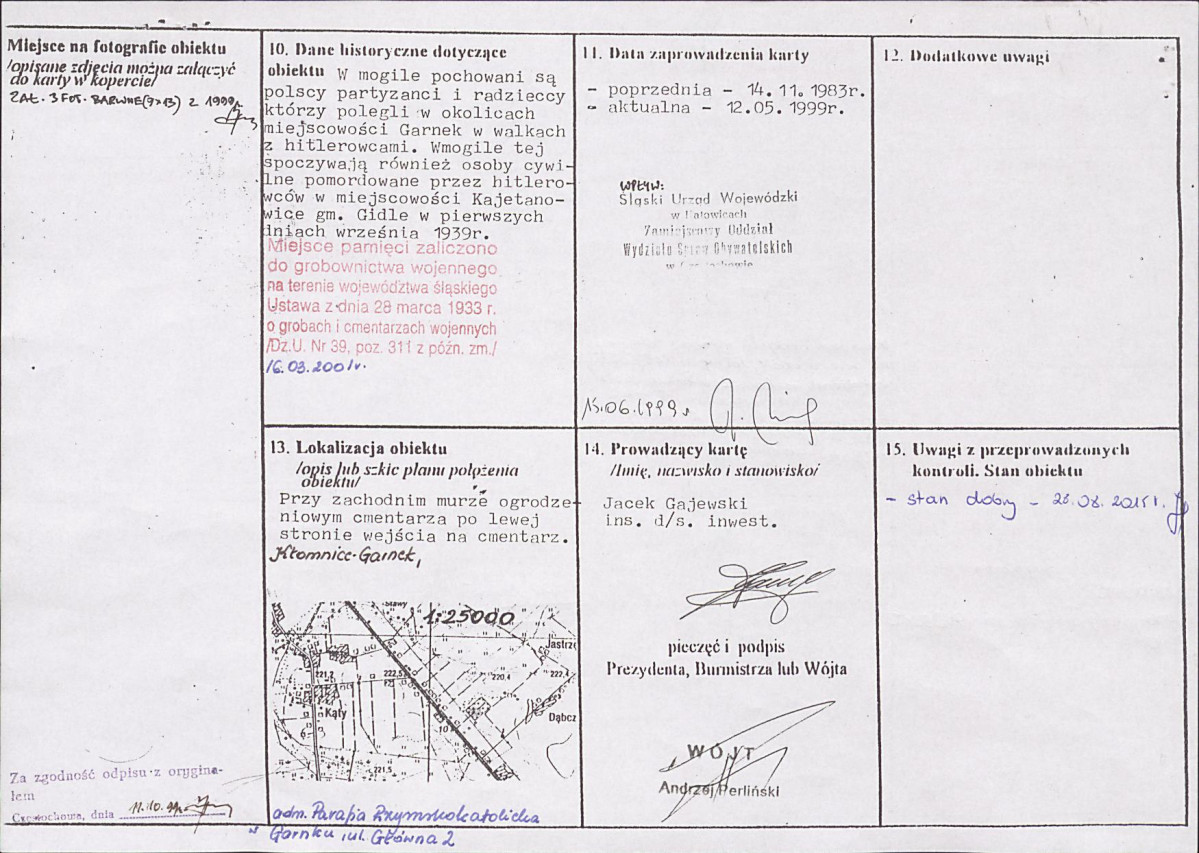 Miejsce na fotografie obiektu
/opisane zdjęcia można załączyć
do karty w kopercie/
ZAŁ. 3 FOT. BARWNE (9x13) z 1999r.
10. Dane historyczne dotyczące
obiektu W mogile pochowani są
polscy partyzanci i radzieccy
którzy polegli w okolicach
miejscowości Garnek w walkach
z hitlerowcami. Wmogile tej
spoczywają również osoby cywi-
lne pomordowane przez hitlero-
wców w miejscowości Kajetano-
wice gm. Gidle w pierwszych
dniach września 1939r.
Miejsce pamięci zaliczono
do grobownictwa wojennego
na terenie województwa śląskiego
Ustawa z dnia 28 marca 1933 r.
o grobach i cmentarzach wojennych
/Dz.U. Nr 39, poz. 311 z późn. zm./
16.03.2001r.
11. Data zaprowadzenia karty
- poprzednia - 14. 11. 1983r.
- aktualna - 12.05. 1999r.
WPŁYW:
Śląski Urząd Wojewódzki
w Katowicach
Zamiejscowy Oddział
Wydziału Spraw Obywatelskich
w Częstochowie
15.06.1999r
12. Dodatkowe uwagi
13. Lokalizacja obiektu
/opis lub szkic planu położenia
obiektu/
Przy zachodnim murze ogrodze-
niowym cmentarza po lewej
stronie wejścia na cmentarz.
Kłomnice-Garnek,
Stawy
1:25000
Jastrzę
221,2
222,5
220,4
222,4
Kąty
Dąbcz
10
6
221,5
adm. Parafia Rzymskokatolicka
w Garnku, ul. Główna 2
14. Prowadzący kartę
/Imię, nazwisko i stanowisko/
Jacek Gajewski
ins. d/s. inwest.
pieczęć i podpis
Prezydenta, Burmistrza lub Wójta
WÓJT
Andrzej Perliński
15. Uwagi z przeprowadzonych
kontroli. Stan obiektu
- stan dobry - 26.08.2015r.
Za zgodność odpisu z orygina-
łem
Częstochowa, dnia 11.10.99